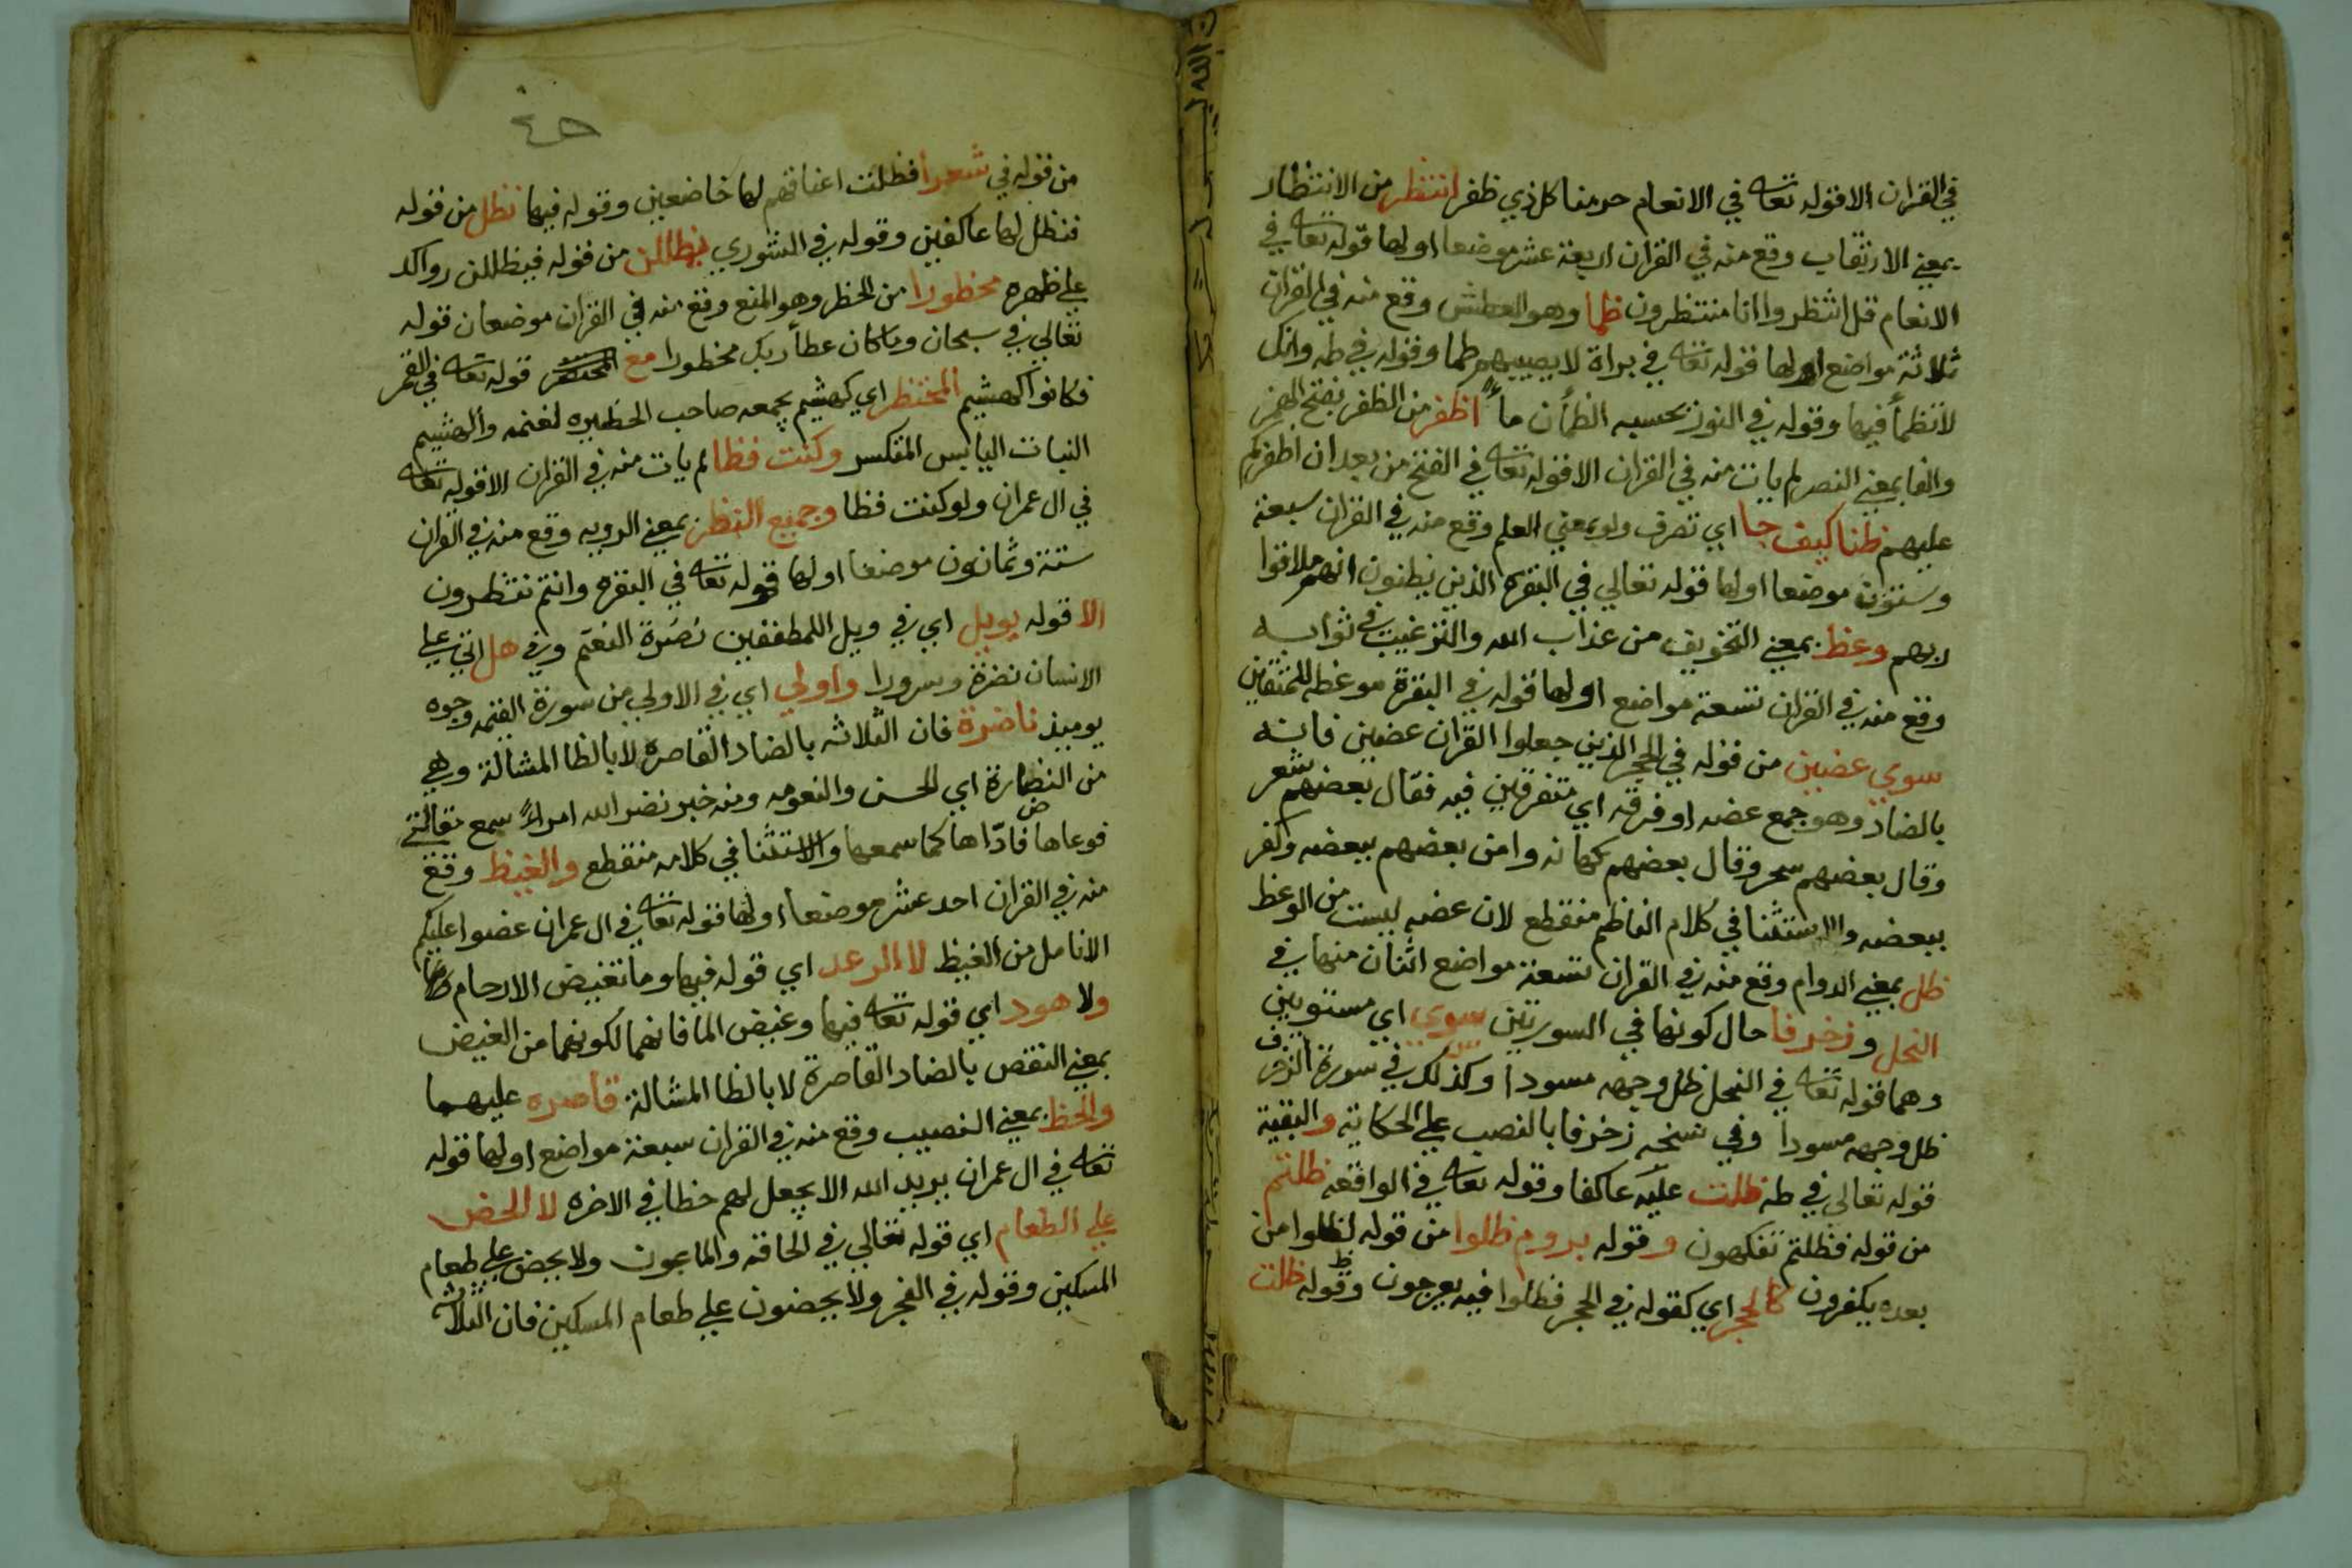 في القران الا قوله تعالى في الانعام حرمنا كل ذي ظفر انتظر من الانتظار
بمعني الارتقاب وقع منه في القران اربعة عشر موضعا اولها قوله تعالى في
الانعام قل انتظروا انا منتظرون ظما وهو العطش وقع منه في القران
ثلاثة مواضع اولها قوله تعالى في براة لا يصيبهم ظما وقوله في طه وانك
لا تظمأ فيها وقوله في النور يحسبه الظمأن ماً اظفر من الظفر بفتح الهمز
والفا بمعني النصر لم يات منه في القران الا قوله تعالى في الفتح من بعد ان اظفركم
عليهم ظنا كيف جا اي تصرف ولو بمعني العلم وقع منه في القران سبعة
وستون موضعا اولها قوله تعالي في البقرة الذين يظنون انهم ملاقوا
ربهم وعظ بمعني التخويف من عذاب الله والترغيب في ثوابه
وقع منه في القران تسعة مواضع اولها قوله في البقرة موعظه للمتقين
سوي عضين من قوله في الحجر الذين جعلوا القران عضين فانه
بالضاد وهو جمع عضه او فرقه اي متفرقين فيه فقال بعضهم شعر
وقال بعضهم سحر وقال بعضهم كهانه وامن بعضهم ببعضه وكفر
ببعضه والاستثنا في كلام الناظم منقطع لان عضه ليست من الوعظ
ظل بمعني الدوام وقع منه في القران تسعة مواضع اثنان منها في
النحل وزخرفا حال كونها في السورتين سوي اي مستويين
وهما قوله تعالى في النحل ظل وجهه مسودا وكذلك في سورة الزخرف
ظل وجهه مسودا وفي نسخه زخرفا بالنصب علي الحكاية والبقية
قوله تعالى في طه ظلت عليه عاكفا وقوله تعالى في الواقعه ظلتم
من قوله فظلتم تفكهون وقوله بروم ظلوا من قوله لظلوا من
بعده يكفرون كالحجر اي كقوله في الحجر فظلوا فيه يعرجون وقوله ظلت
من قوله في شعرا فظلت اعناقهم لها خاضعين وقوله فيها نظل من قوله
فنظل لها عاكفين وقوله في الشوري يظللن من قوله فيظللن رواكد
علي ظهره محظورا من الحظر وهو المنع وقع منه في القران موضعان قوله
تعالي في سبحان وما كان عطأ ربك محظورا مع المحتظر قوله تعالى في القمر
فكانوا كهشيم المحتظر اي كهشيم يجمعه صاحب الحظيره لغنمه والهشيم
النبات اليابس المتكسر وكنت فظا لم يات منه في القران الا قوله تعالى
في ال عمران ولو كنت فظا وجميع النظر بمعني الرويه وقع منه في القران
ستة وثمانون موضعا اولها قوله تعالى في البقره وانتم تنظرون
الا قوله بويل اي في ويل اللمطففين نضرة النعيم وفي هل اتي علي
الانسان نضرة وسرورا واولي اي في الاولي من سورة القيمه وجوه
يوميذ ناضرة فان الثلاثه بالضاد القاصره لا بالظا المشالة وهي
من النضارة اي الحسن والنعومه ومنه خبر نضر الله امراً سمع مقالتي
فوعاها فادّاها كما سمعها والاستثنا في كلامه منقطع والغيظ وقع
منه في القران احد عشر موضعا اولها قوله تعالى في ال عمران عضوا عليكم
الانامل من الغيظ لا الرعد اي قوله فيها وما تغيض الارحام
ولا هود اي قوله تعالى فيها وغيض الما فانهما لكونهما من الغيض
بمعني النقص بالضاد القاصرة لا بالظا المشالة قاصره عليهما
والحظ بمعني النصيب وقع منه في القران سبعة مواضع اولها قوله
تعالى في ال عمران يريد الله الا يجعل لهم حظا في الاخره لا الحض
علي الطعام اي قوله تعالي في الحاقه والماعون ولا يحض علي طعام
المسكين وقوله في الفجر ولا يحضون علي طعام المسكين فان الثلاثه